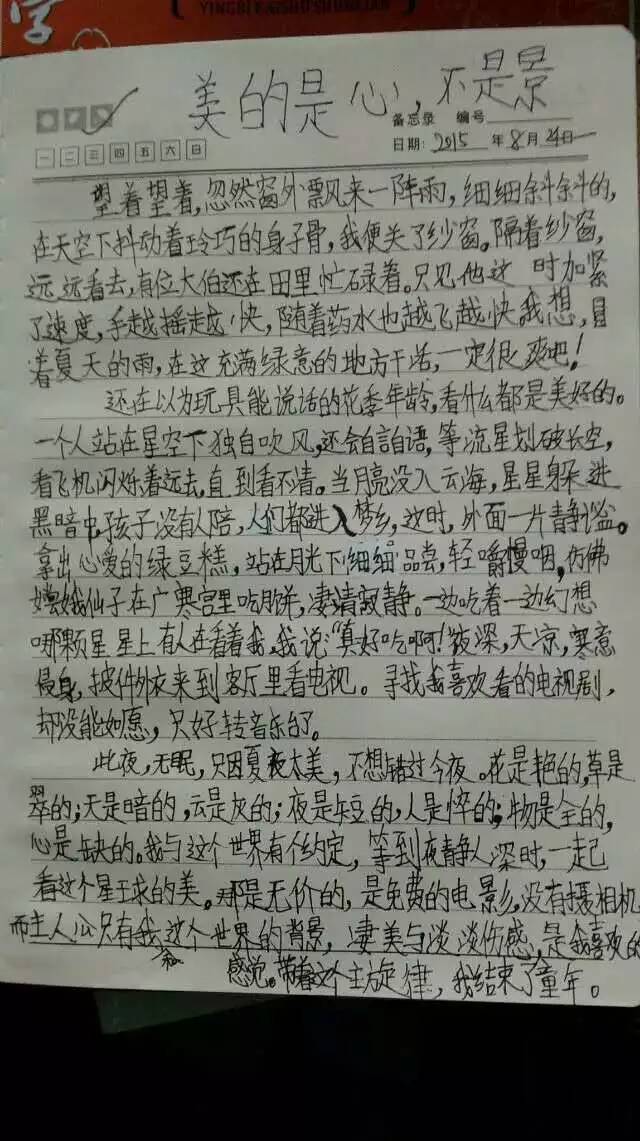 字
YINGBI KAISHU
美的是心，不是景
备忘录 编号
一 二 三 四 五 六 日
日期：2015 年 8 月 24 日
望着望着，忽然窗外飘来一阵雨，细细斜斜的，
在天空下抖动着玲巧的身子骨，我便关了纱窗。隔着纱窗，
远远看去，有位大伯还在田里忙碌着。只见他这 时加紧
了速度，手越摇越快，随着药水也越飞越快。我想，冒
着夏天的雨，在这充满绿意的地方干活，一定很爽吧！
还在以为玩具能说话的花季年龄，看什么都是美好的。
一个人站在星空下独自吹风，还会自言自语，等流星划破长空，
看飞机闪烁着远去，直到看不清。当月亮没入云海，星星躲进
黑暗中，孩子没有人陪，人们都进入梦乡，这时，外面一片静谧。
拿出心爱的绿豆糕，站在月光下细细品尝，轻嚼慢咽，仿佛
嫦娥仙子在广寒宫里吃月饼，凄清寂静。一边吃着一边幻想
哪颗星星上有人在看着我，我说：“真好吃啊！夜深，天凉，寒意
侵身，披件外衣来到客厅里看电视。寻找我喜欢看的电视剧，
却没能如愿，只好转音乐台了。
此夜，无眠，只因夏夜太美，不想错过今夜。花是艳的，草是
翠的；天是暗的，云是灰的；夜是短的，人是悴的；物是全的，
心是缺的。我与这个世界有个约定，等到夜静人深时，一起
看这个星球的美。那是无价的，是免费的电影，没有摄相机，
而主人公只有我这个世界的背景，凄美与淡淡伤感，是我喜欢的
和
感觉。带着这个主旋律，我结束了童年。